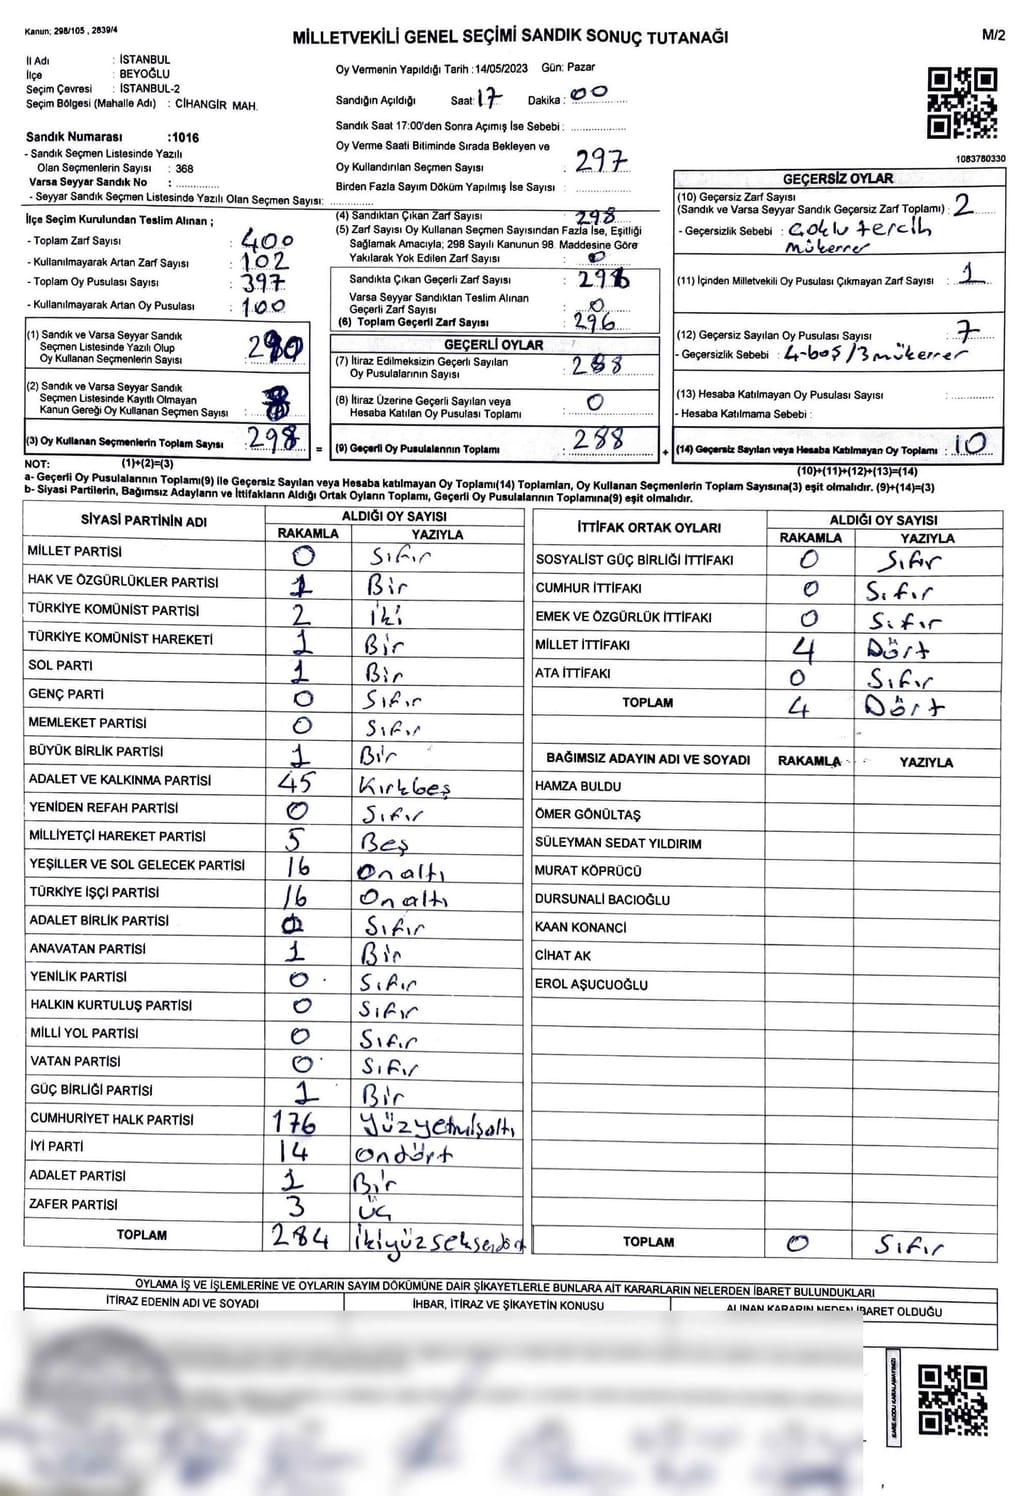 Kanun; 298/105 , 2839/4
MİLLETVEKİLİ GENEL SEÇİMİ SANDIK SONUÇ TUTANAĞI
M/2
İl Adı : İSTANBUL
İlçe : BEYOĞLU
Seçim Çevresi : İSTANBUL-2
Seçim Bölgesi (Mahalle Adı) : CİHANGİR MAH.
Sandık Numarası :1016
- Sandık Seçmen Listesinde Yazılı
Olan Seçmenlerin Sayısı : 368
Varsa Seyyar Sandık No : ..............
- Seyyar Sandık Seçmen Listesinde Yazılı Olan Seçmen Sayısı: ..............
Oy Vermenin Yapıldığı Tarih :14/05/2023 Gün: Pazar
Sandığın Açıldığı Saat: 17 Dakika : 00
Sandık Saat 17:00'den Sonra Açımış İse Sebebi : ..............
Oy Verme Saati Bitiminde Sırada Bekleyen ve
Oy Kullandırılan Seçmen Sayısı : 297
Birden Fazla Sayım Döküm Yapılmış İse Sayısı : ..............
1083780330
İlçe Seçim Kurulundan Teslim Alınan ;
- Toplam Zarf Sayısı : 400
- Kullanılmayarak Artan Zarf Sayısı : 102
- Toplam Oy Pusulası Sayısı : 397
- Kullanılmayarak Artan Oy Pusulası : 100
(1) Sandık ve Varsa Seyyar Sandık
Seçmen Listesinde Yazılı Olup
Oy Kullanan Seçmenlerin Sayısı :
(2) Sandık ve Varsa Seyyar Sandık
Seçmen Listesinde Kayıtlı Olmayan
Kanun Gereği Oy Kullanan Seçmen Sayısı :
(3) Oy Kullanan Seçmenlerin Toplam Sayısı : 298 =
(4) Sandıktan Çıkan Zarf Sayısı : 298
(5) Zarf Sayısı Oy Kullanan Seçmen Sayısından Fazla İse, Eşitliği
Sağlamak Amacıyla; 298 Sayılı Kanunun 98. Maddesine Göre
Yakılarak Yok Edilen Zarf Sayısı : 0
Sandıkta Çıkan Geçerli Zarf Sayısı : 296
Varsa Seyyar Sandıktan Teslim Alınan
Geçerli Zarf Sayısı : 0
(6) Toplam Geçerli Zarf Sayısı : 296
GEÇERLİ OYLAR
(7) İtiraz Edilmeksizin Geçerli Sayılan
Oy Pusulalarının Sayısı : 288
(8) İtiraz Üzerine Geçerli Sayılan veya
Hesaba Katılan Oy Pusulası Toplamı : 0
(9) Geçerli Oy Pusulalarının Toplamı : 288 +
GEÇERSİZ OYLAR
(10) Geçersiz Zarf Sayısı
(Sandık ve Varsa Seyyar Sandık Geçersiz Zarf Toplamı) : 2
- Geçersizlik Sebebi : Çoklu tercih
mükerrer
(11) İçinden Milletvekili Oy Pusulası Çıkmayan Zarf Sayısı : 1
(12) Geçersiz Sayılan Oy Pusulası Sayısı : 7
- Geçersizlik Sebebi : 4-boş/3 mükerrer
(13) Hesaba Katılmayan Oy Pusulası Sayısı : ..............
- Hesaba Katılmama Sebebi :
(14) Geçersiz Sayılan veya Hesaba Katılmayan Oy Toplamı : 10
NOT: (1)+(2)=(3)
(10)+(11)+(12)+(13)=(14)
a- Geçerli Oy Pusulalarının Toplamı(9) ile Geçersiz Sayılan veya Hesaba katılmayan Oy Toplamı(14) Toplamları, Oy Kullanan Seçmenlerin Toplam Sayısına(3) eşit olmalıdır. (9)+(14)=(3)
b- Siyasi Partilerin, Bağımsız Adayların ve İttifakların Aldığı Ortak Oyların Toplamı, Geçerli Oy Pusulalarının Toplamına(9) eşit olmalıdır.
SİYASİ PARTİNİN ADI ALDIĞI OY SAYISI
RAKAMLA YAZIYLA
MİLLET PARTİSİ 0 Sıfır
HAK VE ÖZGÜRLÜKLER PARTİSİ 1 Bir
TÜRKİYE KOMÜNİST PARTİSİ 2 iki
TÜRKİYE KOMÜNİST HAREKETİ 1 Bir
SOL PARTİ 1 Bir
GENÇ PARTİ 0 Sıfır
MEMLEKET PARTİSİ 0 Sıfır
BÜYÜK BİRLİK PARTİSİ 1 Bir
ADALET VE KALKINMA PARTİSİ 45 Kırkbeş
YENİDEN REFAH PARTİSİ 0 Sıfır
MİLLİYETÇİ HAREKET PARTİSİ 5 Beş
YEŞİLLER VE SOL GELECEK PARTİSİ 16 Onaltı
TÜRKİYE İŞÇİ PARTİSİ 16 Onaltı
ADALET BİRLİK PARTİSİ 0 Sıfır
ANAVATAN PARTİSİ 1 Bir
YENİLİK PARTİSİ 0 Sıfır
HALKIN KURTULUŞ PARTİSİ 0 Sıfır
MİLLİ YOL PARTİSİ 0 Sıfır
VATAN PARTİSİ 0 Sıfır
GÜÇ BİRLİĞİ PARTİSİ 1 Bir
CUMHURİYET HALK PARTİSİ 176 Yüzyetmişaltı
İYİ PARTİ 14 Ondört
ADALET PARTİSİ 1 Bir
ZAFER PARTİSİ 3 Üç
TOPLAM 284 İkiyüzseksendört
İTTİFAK ORTAK OYLARI ALDIĞI OY SAYISI
RAKAMLA YAZIYLA
SOSYALİST GÜÇ BİRLİĞİ İTTİFAKI 0 Sıfır
CUMHUR İTTİFAKI 0 Sıfır
EMEK VE ÖZGÜRLÜK İTTİFAKI 0 Sıfır
MİLLET İTTİFAKI 4 Dört
ATA İTTİFAKI 0 Sıfır
TOPLAM 4 Dört
BAĞIMSIZ ADAYIN ADI VE SOYADI RAKAMLA YAZIYLA
HAMZA BULDU
ÖMER GÖNÜLTAŞ
SÜLEYMAN SEDAT YILDIRIM
MURAT KÖPRÜCÜ
DURSUNALİ BACIOĞLU
KAAN KONANCİ
CİHAT AK
EROL AŞUCUOĞLU
TOPLAM 0 Sıfır
OYLAMA İŞ VE İŞLEMLERİNE VE OYLARIN SAYIM DÖKÜMÜNE DAİR ŞİKAYETLERLE BUNLARA AİT KARARLARIN NELERDEN İBARET BULUNDUKLARI
İTİRAZ EDENİN ADI VE SOYADI İHBAR, İTİRAZ VE ŞİKAYETİN KONUSU ALINAN KARARIN NEDEN İBARET OLDUĞU